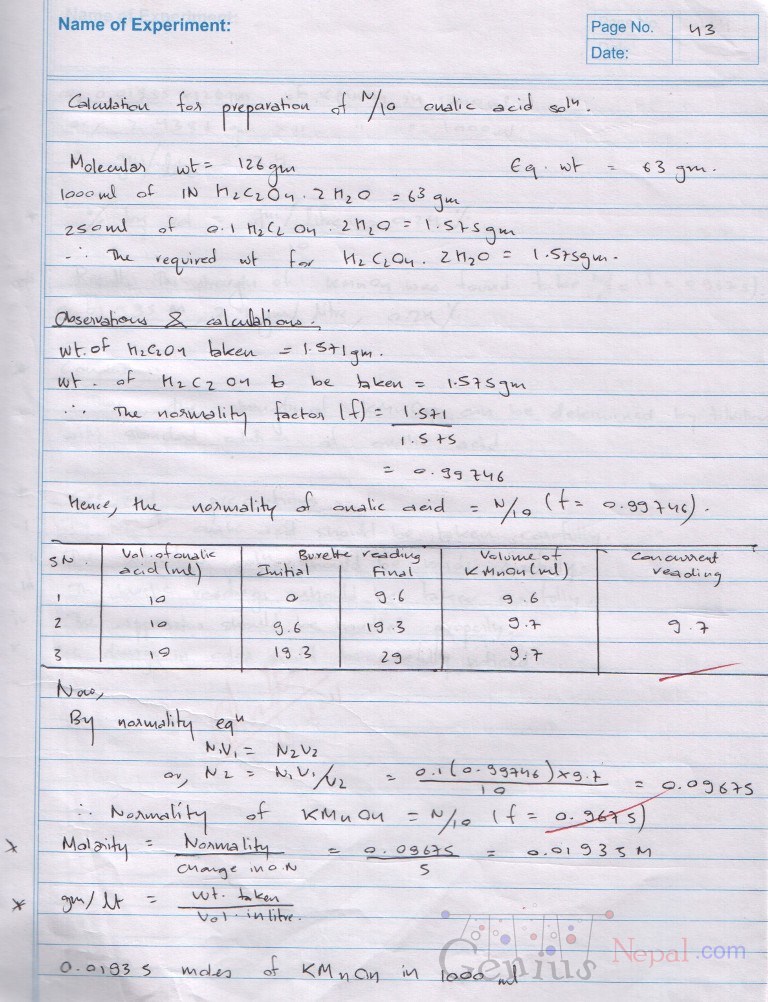 Name of Experiment:
Page No. 43
Date:
Calculation for preparation of N/10 oxalic acid soln.
Molecular wt = 126gm Eq. wt = 63 gm.
1000ml of 1N H2C2O4. 2H2O = 63 gm
250ml of 0.1 H2C2O4. 2H2O = 1.575gm
∴ The required wt for H2C2O4. 2H2O = 1.575gm.
Observations & calculations.
wt. of H2C2O4 taken = 1.571gm.
wt. of H2C2O4 to be taken = 1.575gm
∴ The normality factor (f) = 1.571
1.575
= 0.99746
Hence, the normality of oxalic acid = N/10 (f = 0.99746).
SN. Vol. of oxalic Burette reading Volume of Concurrent
acid (ml) Initial Final KMnO4 (ml) reading
1 10 0 9.6 9.6
2 10 9.6 19.3 9.7 9.7
3 10 19.3 29 9.7
Now,
By normality eqn
N1V1 = N2V2
or, N2 = N1V1/V2 = 0.1(0.99746)×9.7 = 0.09675
10
∴ Normality of KMnO4 = N/10 (f = 0.9675)
Molarity = Normality = 0.09675 = 0.01935 M
Change in O.N 5
gm/lt = wt. taken
Vol. in litre.
0.01935 moles of KMnO4 in 1000 ml
Genius Nepal.com